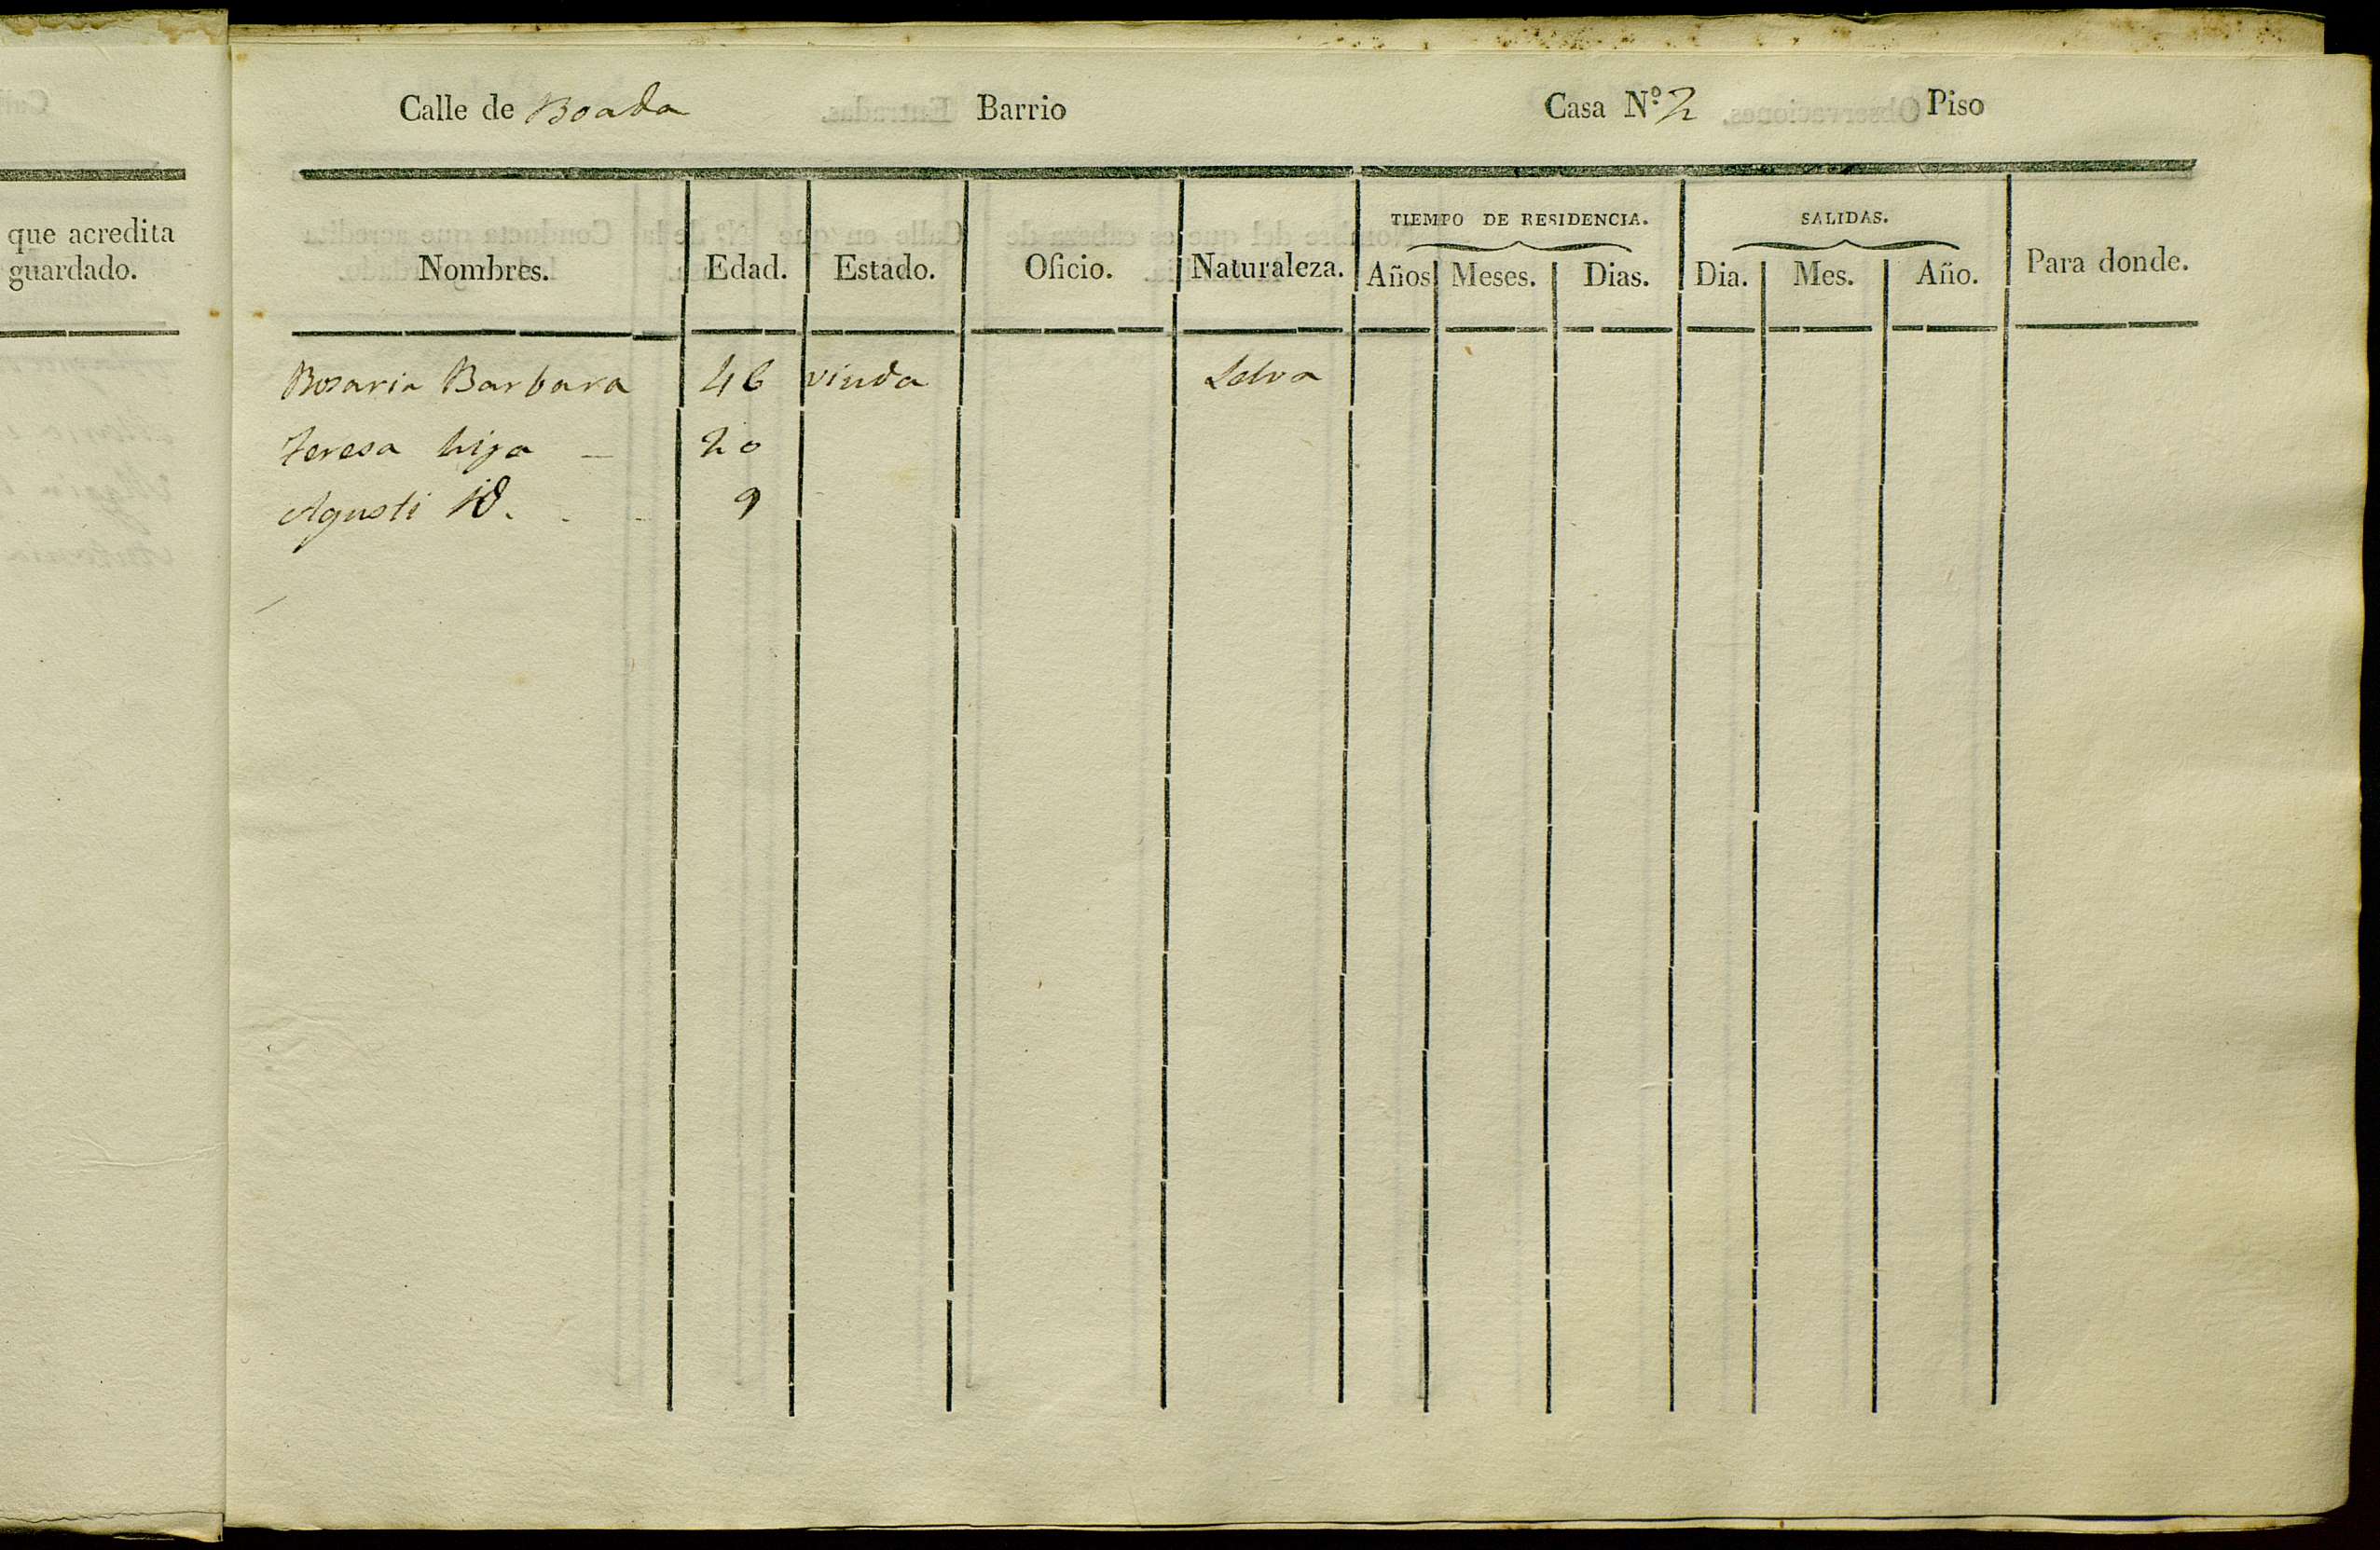 que acredita
guardado.
Calle de Boada Barrio Casa Nº 2 Piso
TIEMPO DE RESIDENCIA. SALIDAS.
Nombres. Edad. Estado. Oficio. Naturaleza. Años Meses. Dias. Dia. Mes. Año. Para donde.
Barbara 46 viuda Selva
Teresa hija — 20
Agusti id. 9